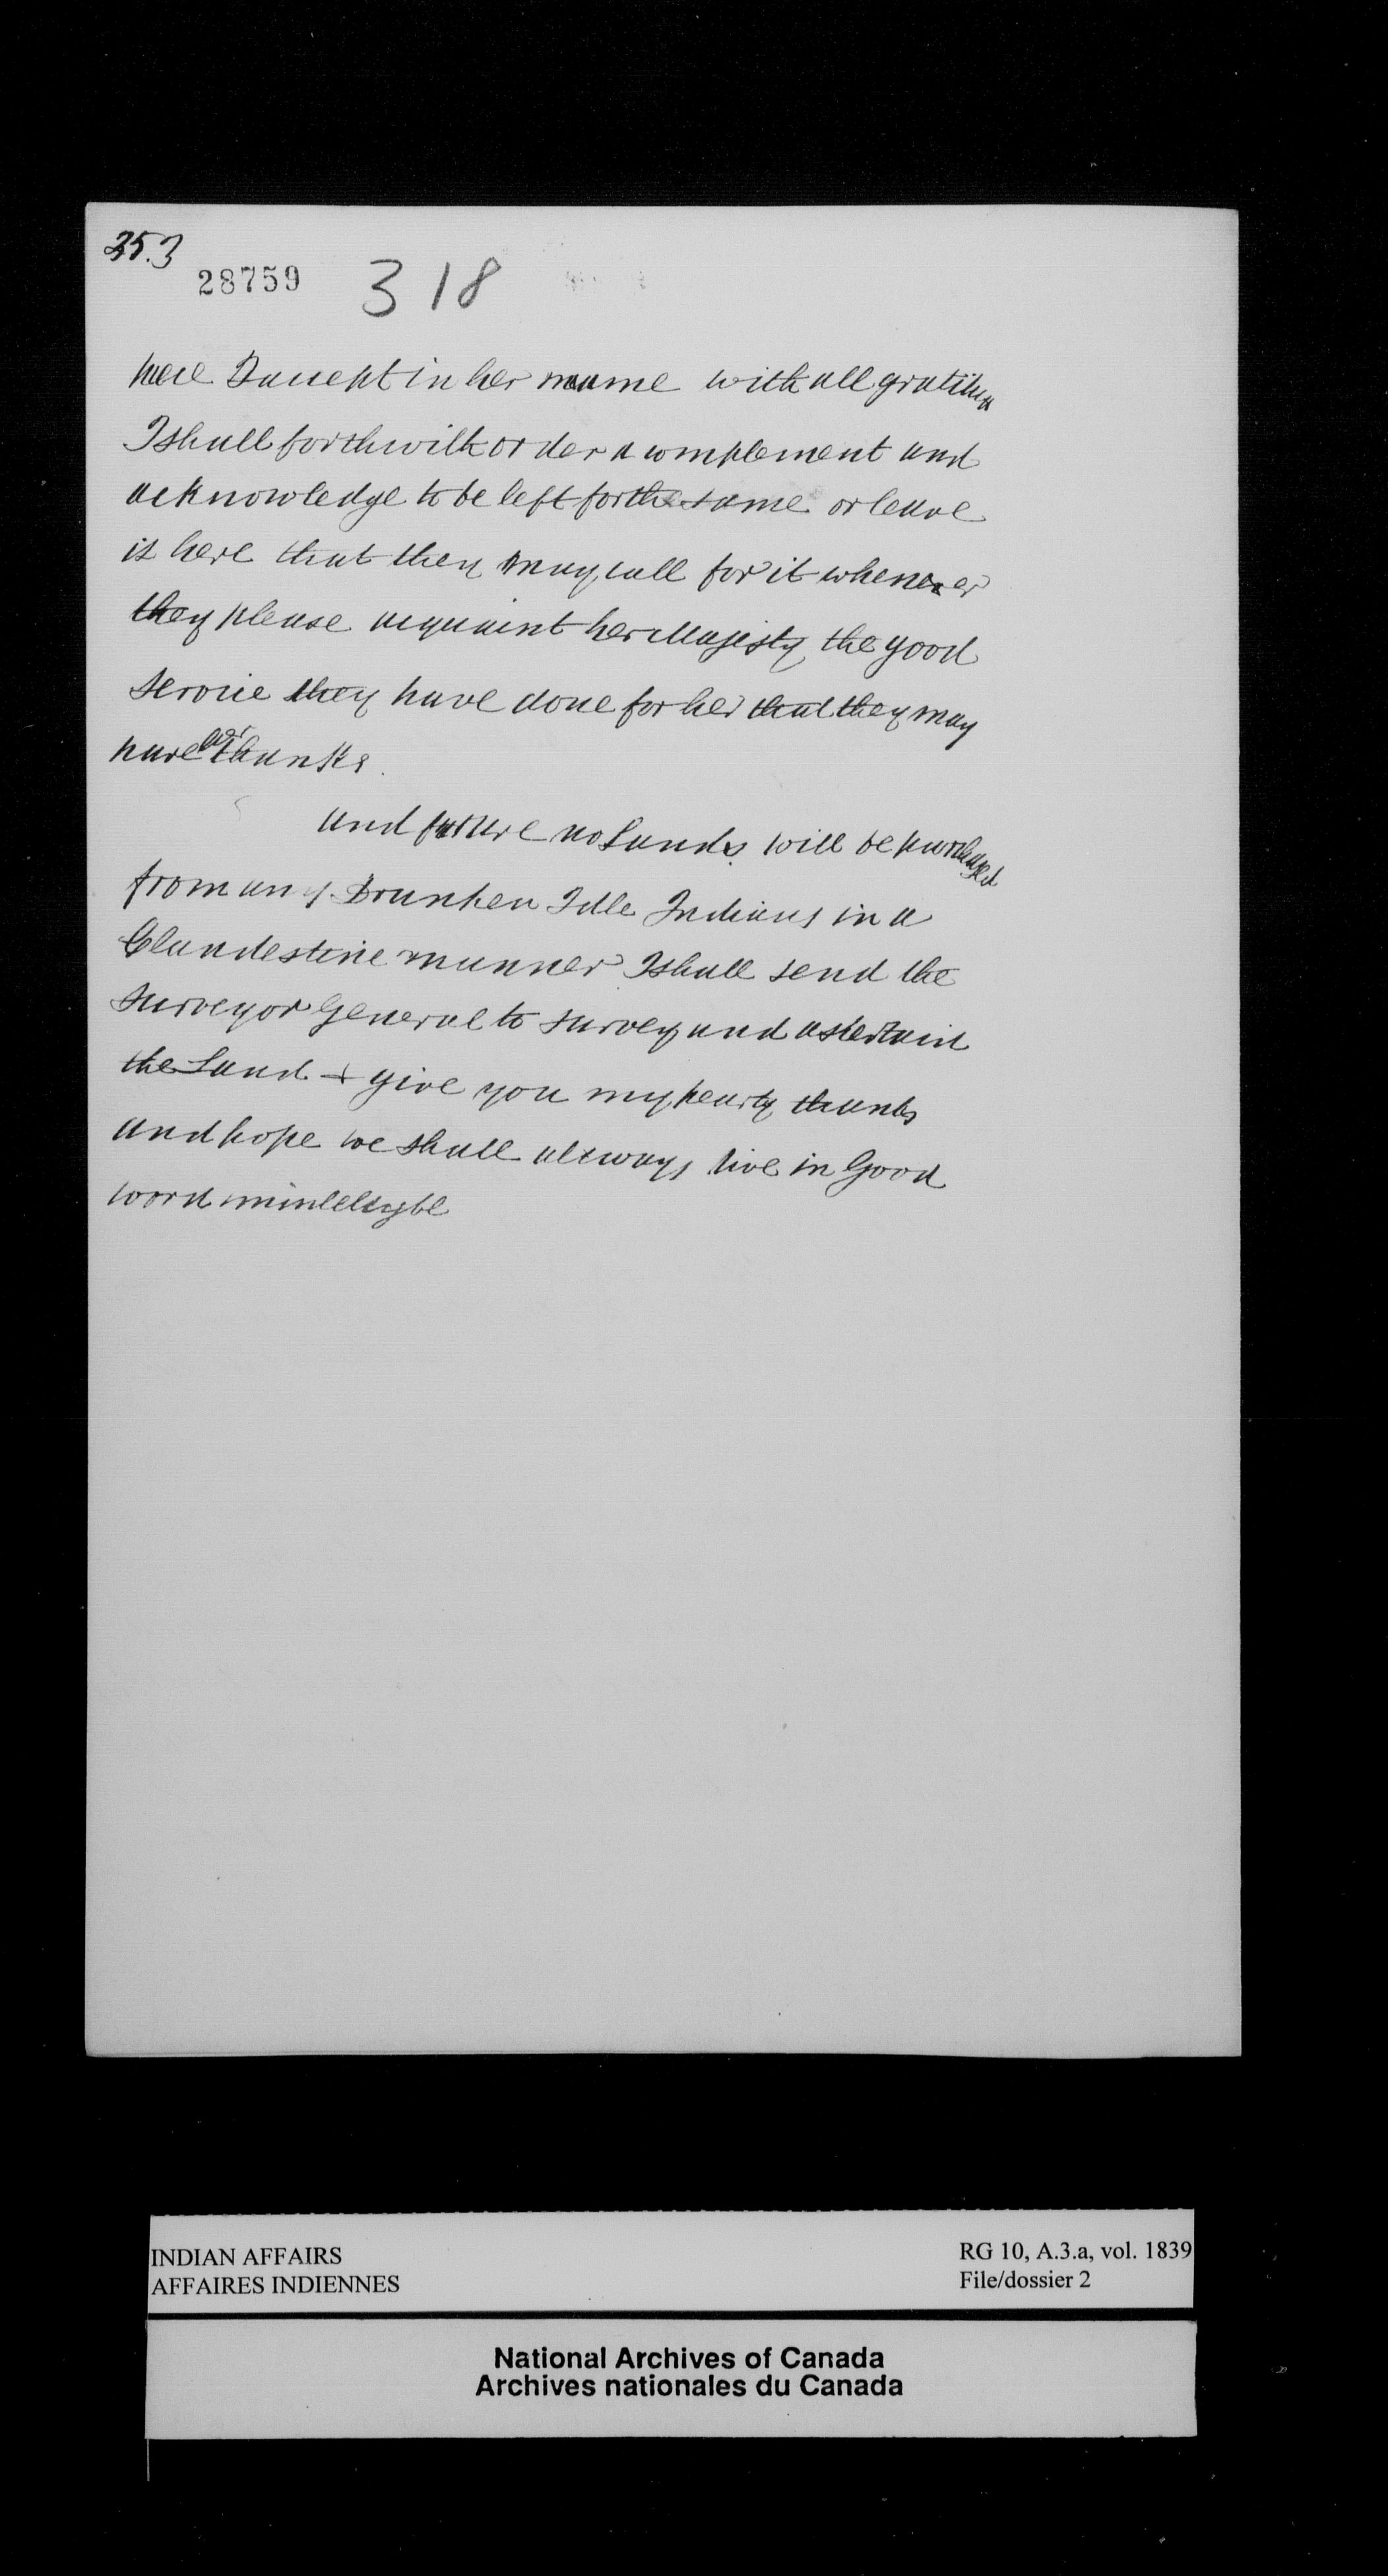 35.3
28759 318
here I accept in her name with all gratitu
I shall forthwith order a complement and
acknowledge to be left for the same or leave
it here that they may call for it whenever
they please acquaint her Majesty the good
service they have done for her that they may
have her thanks.
and future no Lands will be purchased
from any Drunken Idle Indians in a
Clandestine manner I shall send the
Surveyor General to survey and astertain
the Land + give you my hearty thanks
and hope we shall allways live in Good
INDIAN AFFAIRS
AFFAIRES INDIENNES
RG 10, A.3.a, vol. 1839
File/dossier 2
National Archives of Canada
Archives nationales du Canada